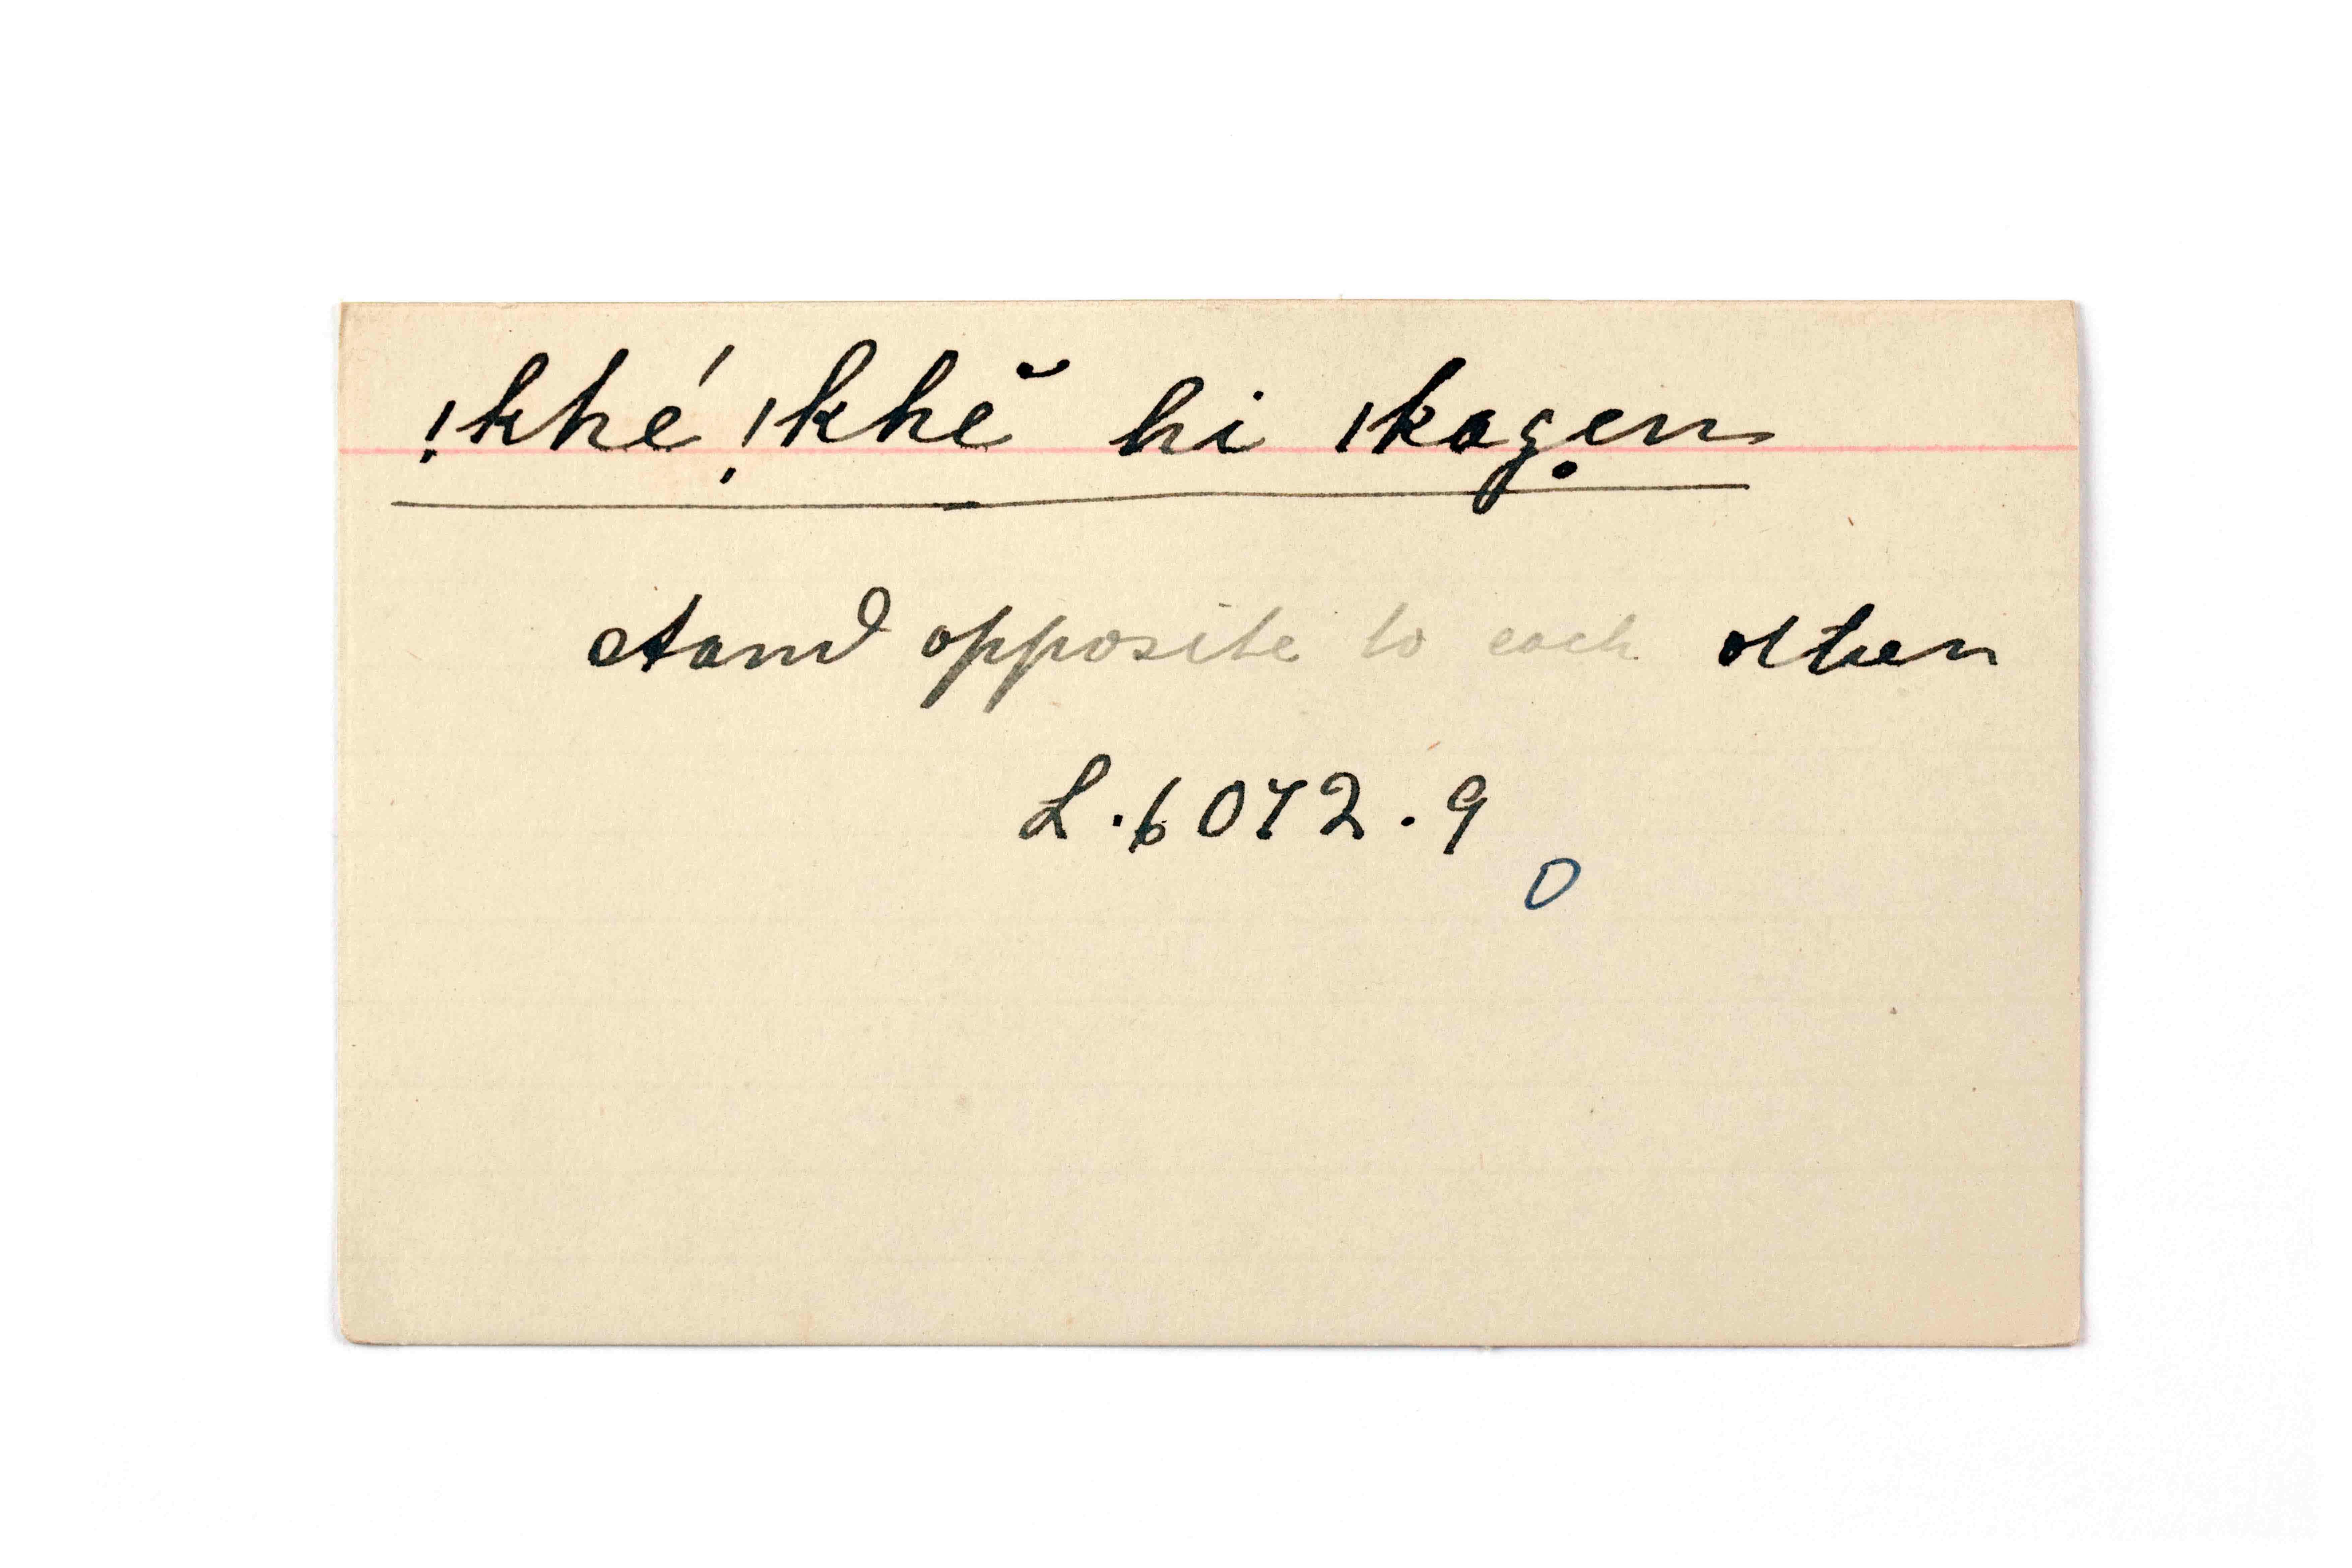 !khé !khĕ hi ıkagẹn
stand opposite to each other
L.6072.9
0